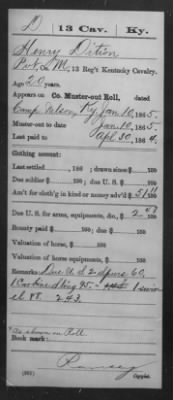 D | 13 Cav. | Ky.
Henry Ditson
Pvt, Co. M, 13 Reg't Kentucky Cavalry.
Age 20 years.
Appears on Co. Muster-out Roll, dated
Camp Nelson, Ky Jan 10, 1865.
Muster-out to date Jan 10, 1865.
Last paid to Apl 30, 1864.
Clothing account:
Last settled , 186 ; drawn since $ 100
Due soldier $ 100; due U. S. $ 100
Am't for cloth'g in kind or money adv'd $
Due U. S. for arms, equipments, &c., $ 2
Bounty paid $ 100; due $ 100
Valuation of horse, $ 100
Valuation of horse equipments, $ 100
Remarks: Due U S 2 Spurs 60,
1 Carbine Sling 95. 1
88. 2.43.
*As shown on Roll.
Book mark:
Ramsey
(361) Copyist.